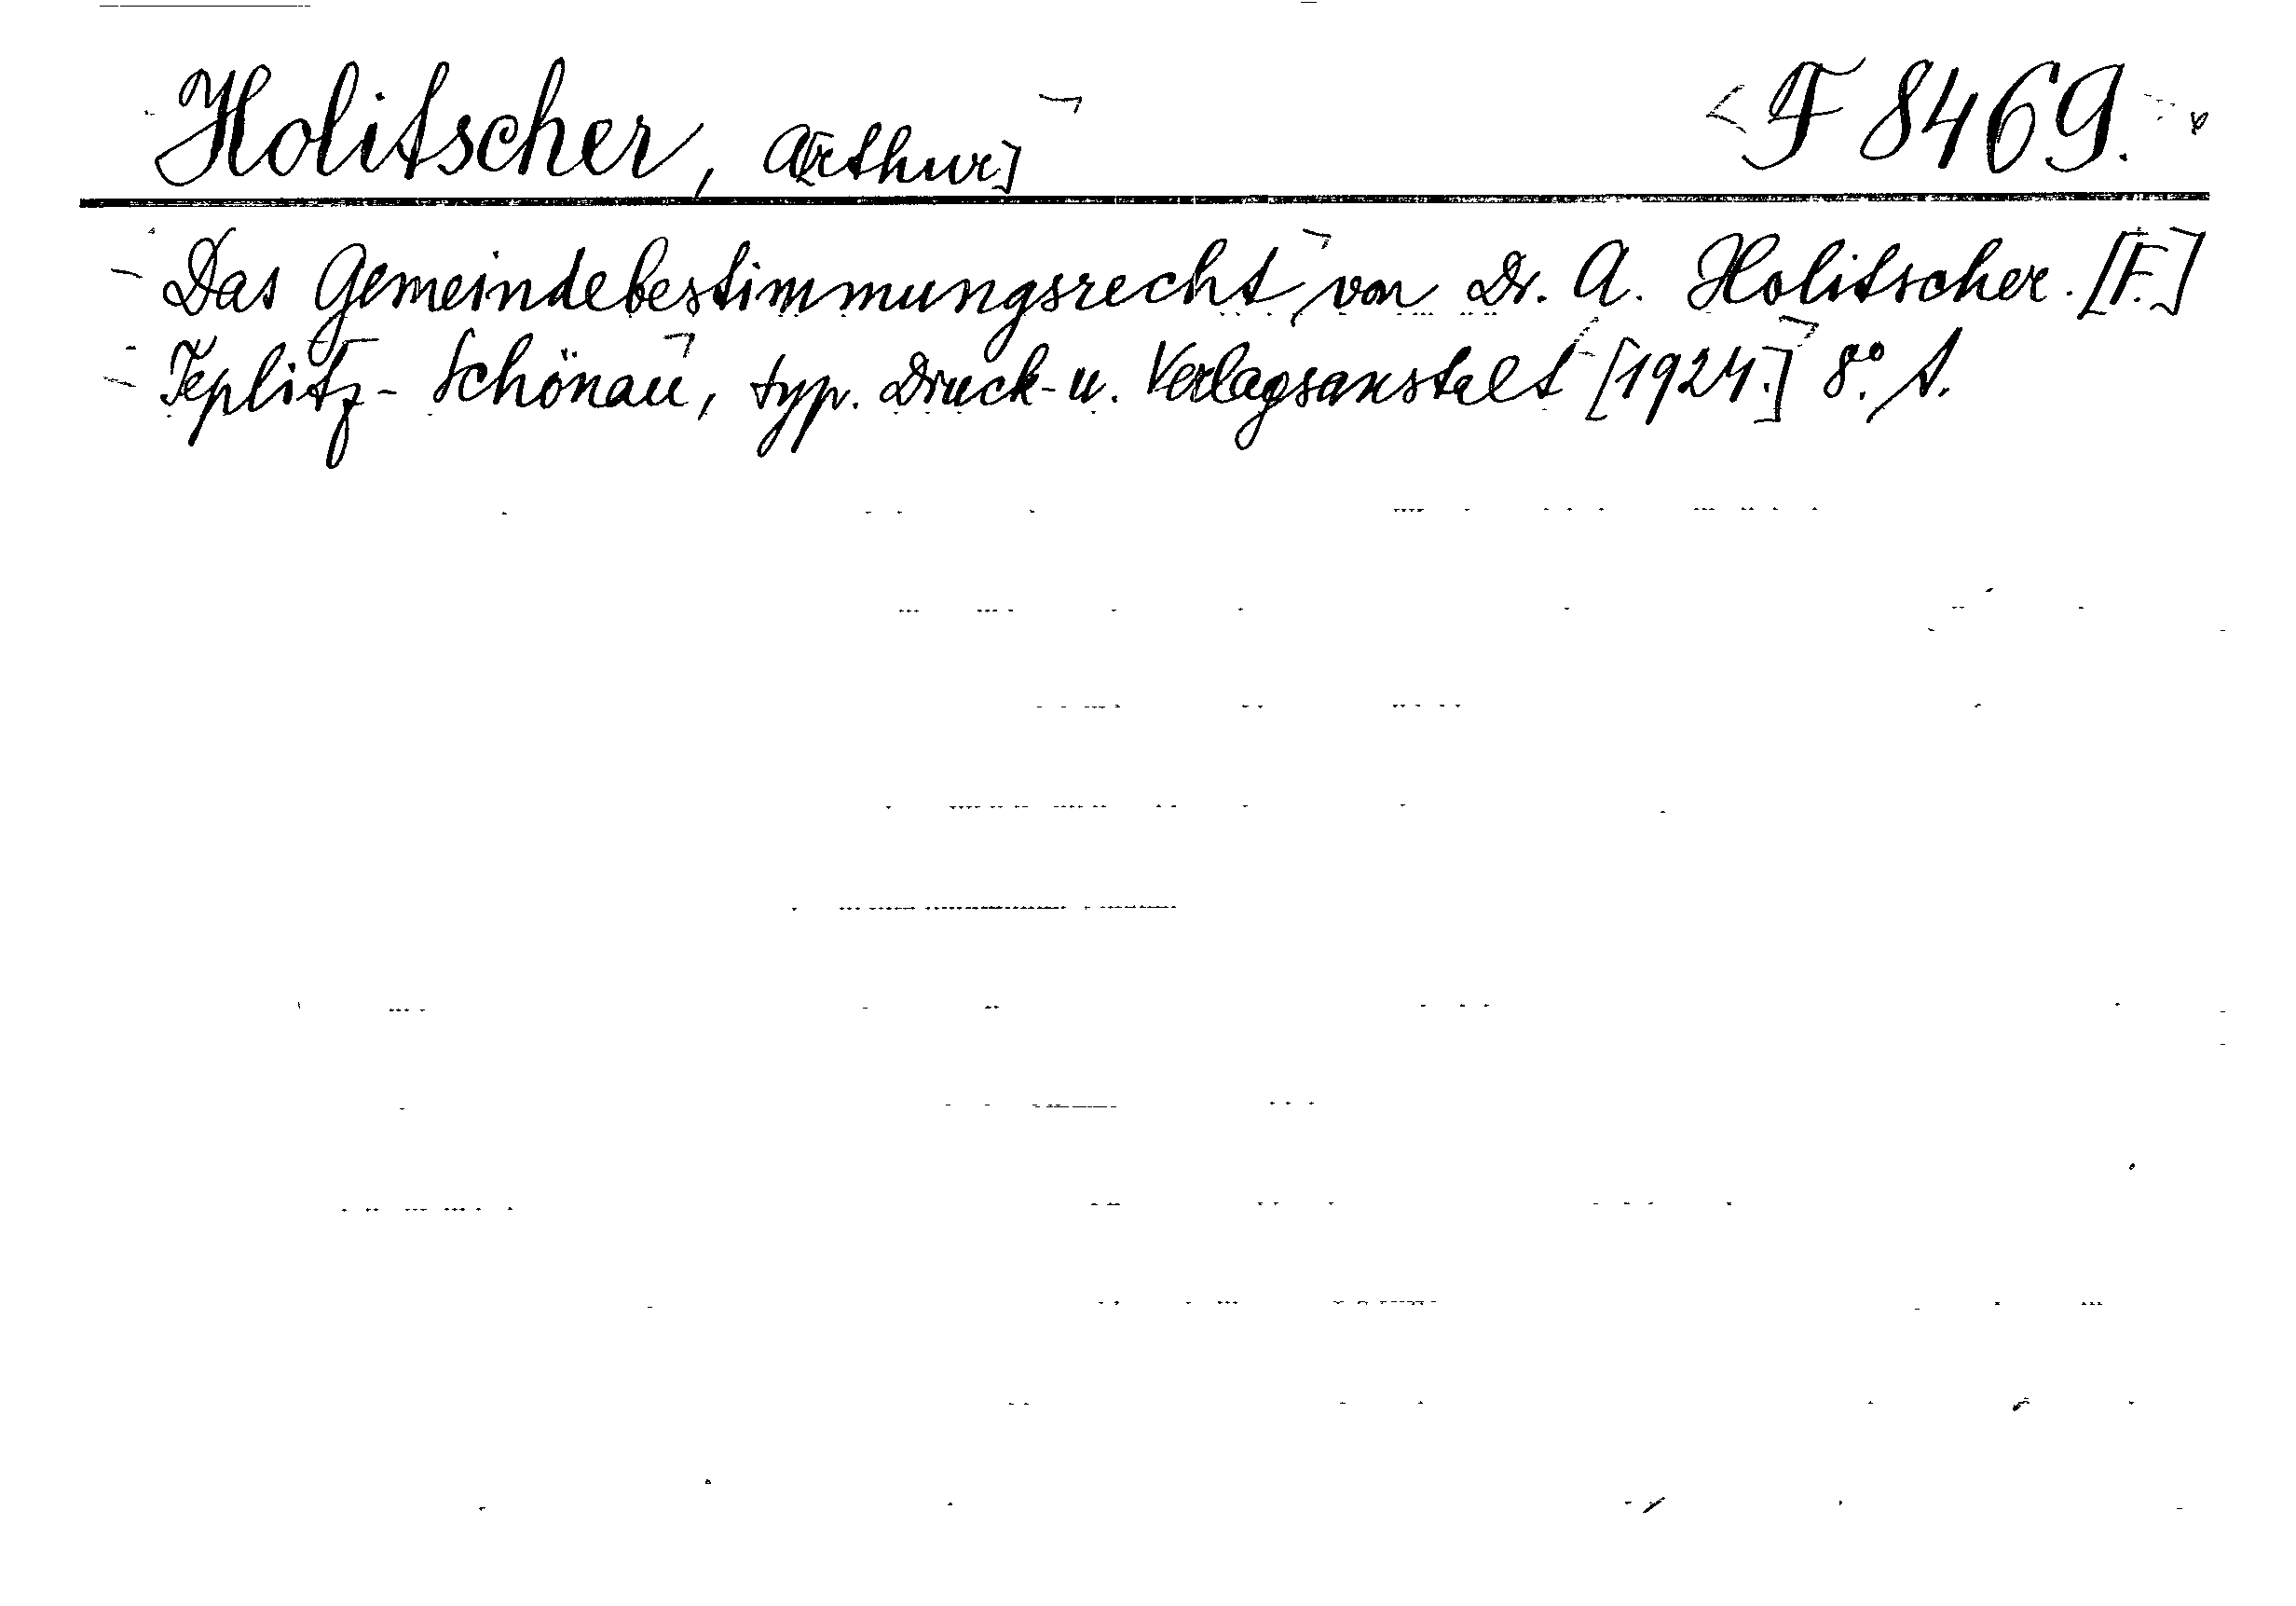 Holitscher, A[rthur] F 8469.
Das Gemeindebestimmungsrecht, von Dr. A. Holitscher. [F.]
Teplitz-Schönau, typ. Druck- u. Verlagsanstalt [1924.] 8°. A.